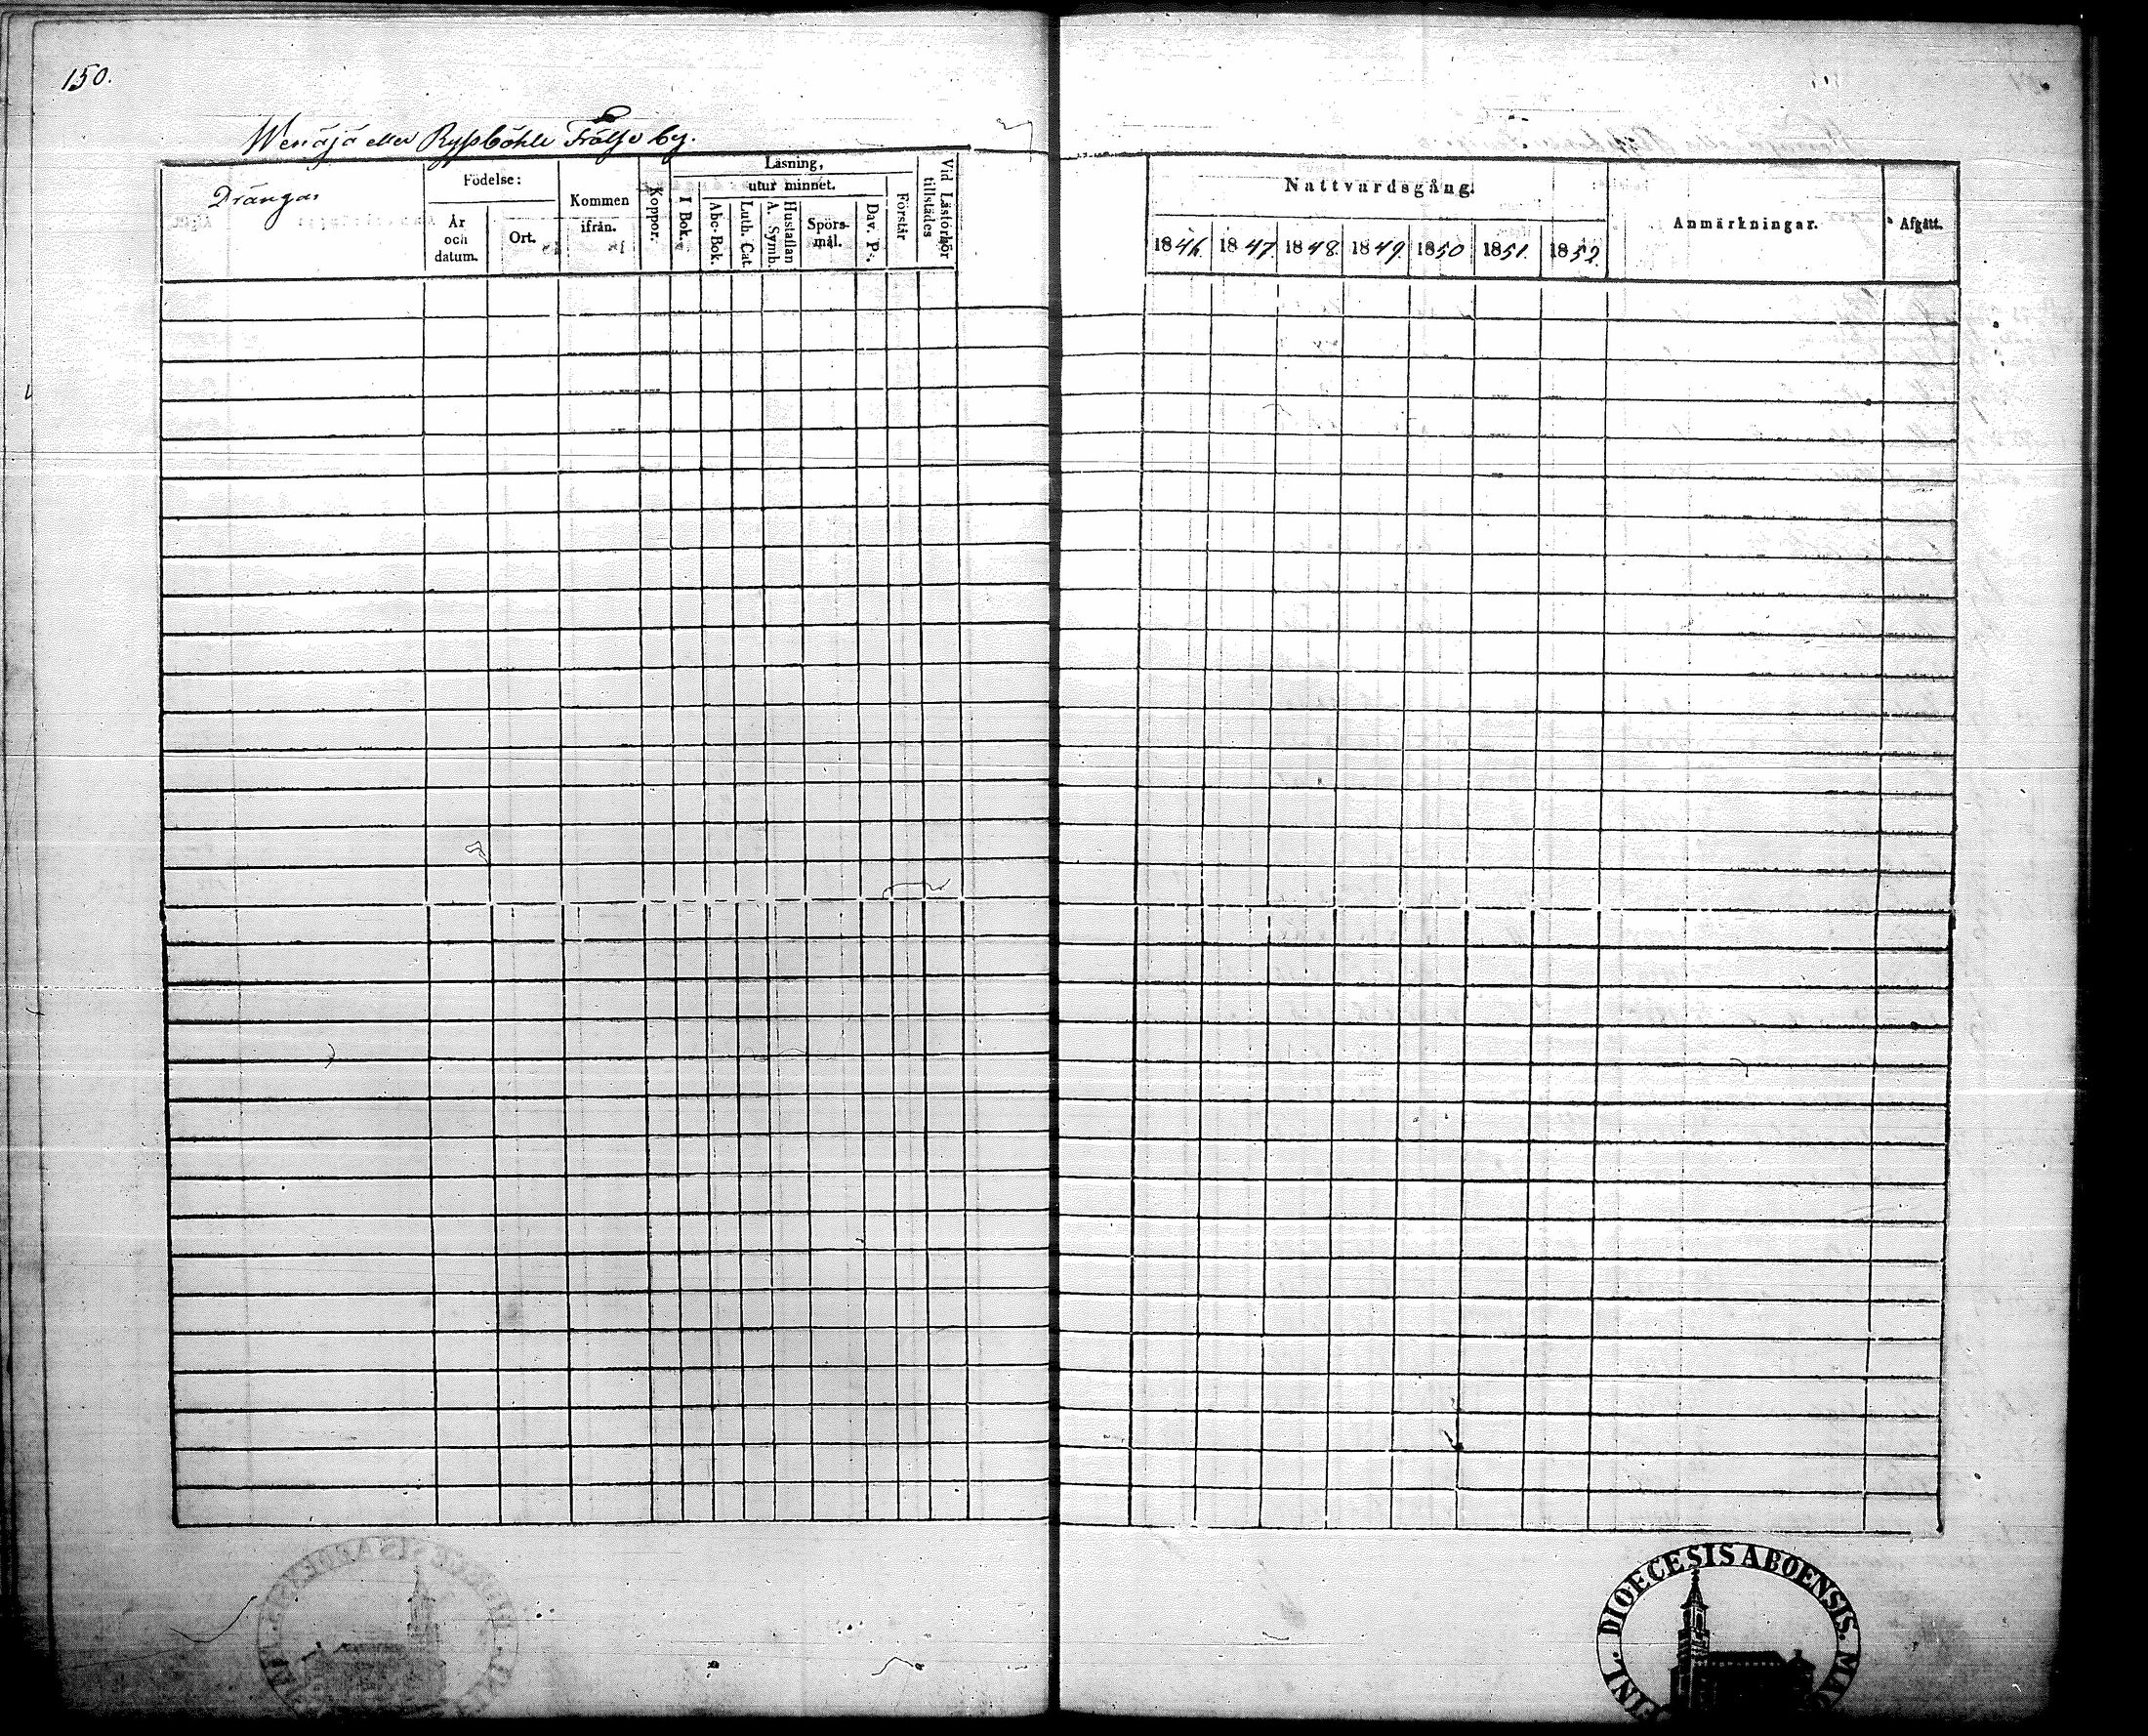 150.
Wenäjä eller Ryssböhle Frälse by.
Drängar
Födelse:
År
och
datum.
Ort.
Kommen
ifrån.
Koppor.
Läsning,
utur minnet.
I Bok.
Abc-Bok.
Luth. Cat.
Hustaflan
A. Symb.
Spörs-
mål.
Dav. Ps.
Förstår
Vid Läsförhör
tillstädes
Nattvardsgång.
1846. 1847. 1848. 1849. 1850 1851. 1852.
Anmärkningar.
Afgått.
FINL. DIOECESIS ABOENSIS. MAG